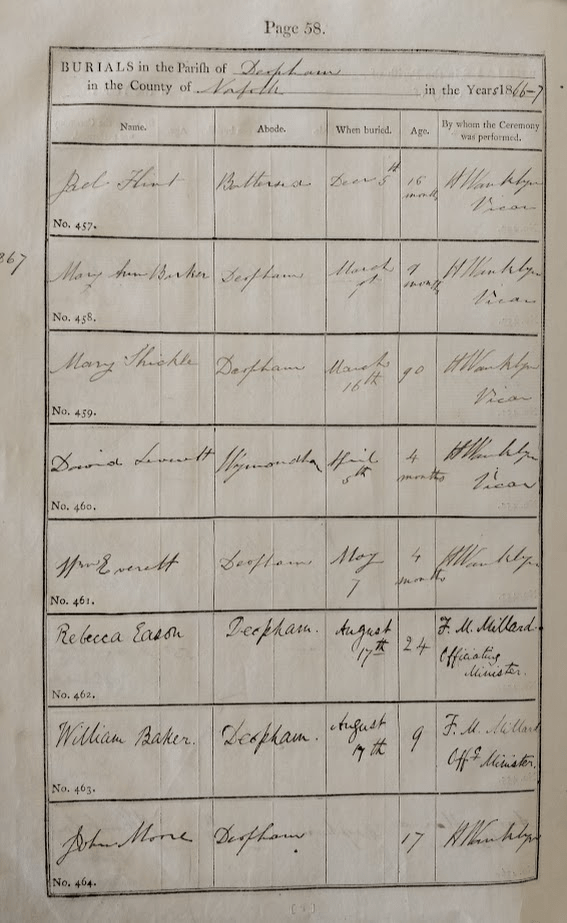 Page 58.
BURIALS in the Parish of Deopham
in the County of Norfolk in the Years 1866-7
Name. Abode. When buried. Age. By whom the Ceremony was performed.
Jael Flint Battersea Decr 5th 16 months H Wanklyn Vicar
No. 457.
867
Mary Ann Barker Deopham March 9 months H Wanklyn Vicar
No. 458.
Mary Thickle Deopham March 16th 90 H Wanklyn Vicar
No. 459.
David Leverett Wymondham April 5th 4 months H Wanklyn Vicar
No. 460.
Wm Everett Deopham May 7 4 months H Wanklyn
No. 461.
Rebecca Eason Deopham. August 17th 24 F. M. Millard Officiating Minister.
No. 462.
William Baker. Deopham. August 17th 9 F. M. Millard Offg Minister.
No. 463.
John Moore Deopham 17 H Wanklyn
No. 464.